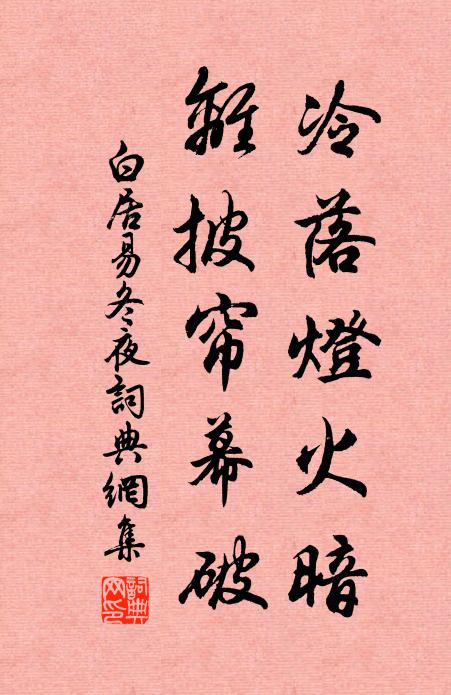 冷落燈火暗
離披帘幕破
白居易冬夜詞典網集
詞典网印